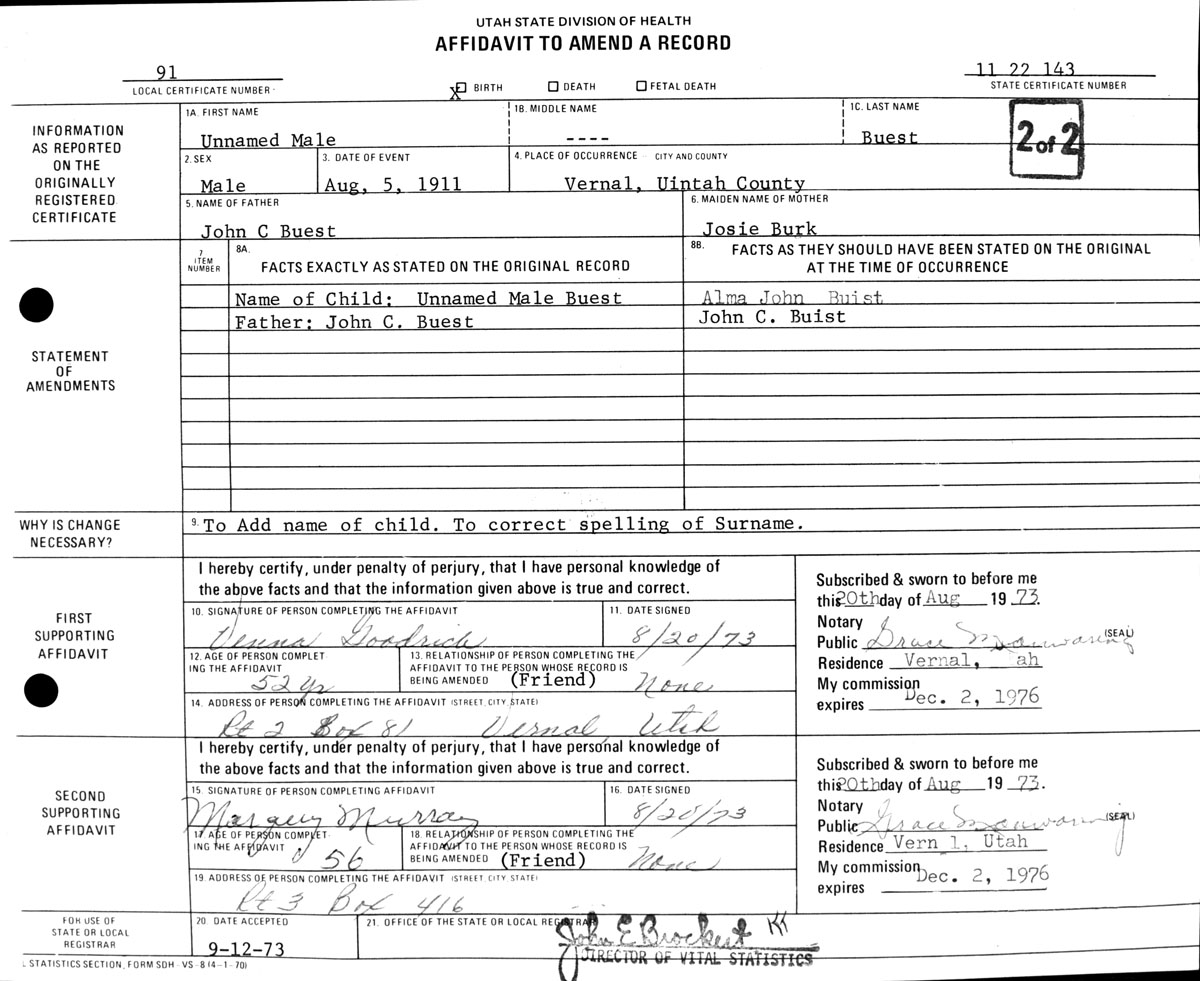 UTAH STATE DIVISION OF HEALTH
AFFIDAVIT TO AMEND A RECORD
91
LOCAL CERTIFICATE NUMBER
X BIRTH DEATH FETAL DEATH
11 22 143
STATE CERTIFICATE NUMBER
2 of 2
INFORMATION
AS REPORTED
ON THE
ORIGINALLY
REGISTERED
CERTIFICATE
1A. FIRST NAME 1B. MIDDLE NAME 1C. LAST NAME
Unnamed Male ---- Buest
2. SEX 3. DATE OF EVENT 4. PLACE OF OCCURRENCE CITY AND COUNTY
Male Aug, 5, 1911 Vernal, Uintah County
5. NAME OF FATHER 6. MAIDEN NAME OF MOTHER
John C Buest Josie Burk
STATEMENT
OF
AMENDMENTS
7. ITEM NUMBER
8A. FACTS EXACTLY AS STATED ON THE ORIGINAL RECORD
8B. FACTS AS THEY SHOULD HAVE BEEN STATED ON THE ORIGINAL
AT THE TIME OF OCCURRENCE
Name of Child: Unnamed Male Buest Alma John Buist
Father: John C. Buest John C. Buist
WHY IS CHANGE
NECESSARY?
9. To Add name of child. To correct spelling of Surname.
FIRST
SUPPORTING
AFFIDAVIT
I hereby certify, under penalty of perjury, that I have personal knowledge of
the above facts and that the information given above is true and correct.
10. SIGNATURE OF PERSON COMPLETING THE AFFIDAVIT 11. DATE SIGNED
Venna Goodrich 8/20/73
12. AGE OF PERSON COMPLET
ING THE AFFIDAVIT
52 yr
13. RELATIONSHIP OF PERSON COMPLETING THE
AFFIDAVIT TO THE PERSON WHOSE RECORD IS
BEING AMENDED (Friend) None
14. ADDRESS OF PERSON COMPLETING THE AFFIDAVIT (STREET, CITY, STATE)
Rt 2 Box 81 Vernal, Utah
Subscribed & sworn to before me
this 20th day of Aug 19 73.
Notary
Public Grace Manwaring (SEAL)
Residence Vernal, ah
My commission
expires Dec. 2, 1976
SECOND
SUPPORTING
AFFIDAVIT
I hereby certify, under penalty of perjury, that I have personal knowledge of
the above facts and that the information given above is true and correct.
15. SIGNATURE OF PERSON COMPLETING AFFIDAVIT 16. DATE SIGNED
Murray 8/20/73
17. AGE OF PERSON COMPLET-
ING THE AFFIDAVIT
56
18. RELATIONSHIP OF PERSON COMPLETING THE
AFFIDAVIT TO THE PERSON WHOSE RECORD IS
BEING AMENDED (Friend) None
19. ADDRESS OF PERSON COMPLETING THE AFFIDAVIT (STREET, CITY, STATE)
Rt 3 Box 416
Subscribed & sworn to before me
this 20th day of Aug 19 73.
Notary
Public Grace Manwaring (SEAL)
Residence Vern l, Utah
My commission
expires Dec. 2, 1976
FOR USE OF
STATE OR LOCAL
REGISTRAR
20. DATE ACCEPTED
9-12-73
21. OFFICE OF THE STATE OR LOCAL REGISTRAR
John E Brockert
DIRECTOR OF VITAL STATISTICS
L STATISTICS SECTION, FORM SDH - VS - 8 (4-1-70)